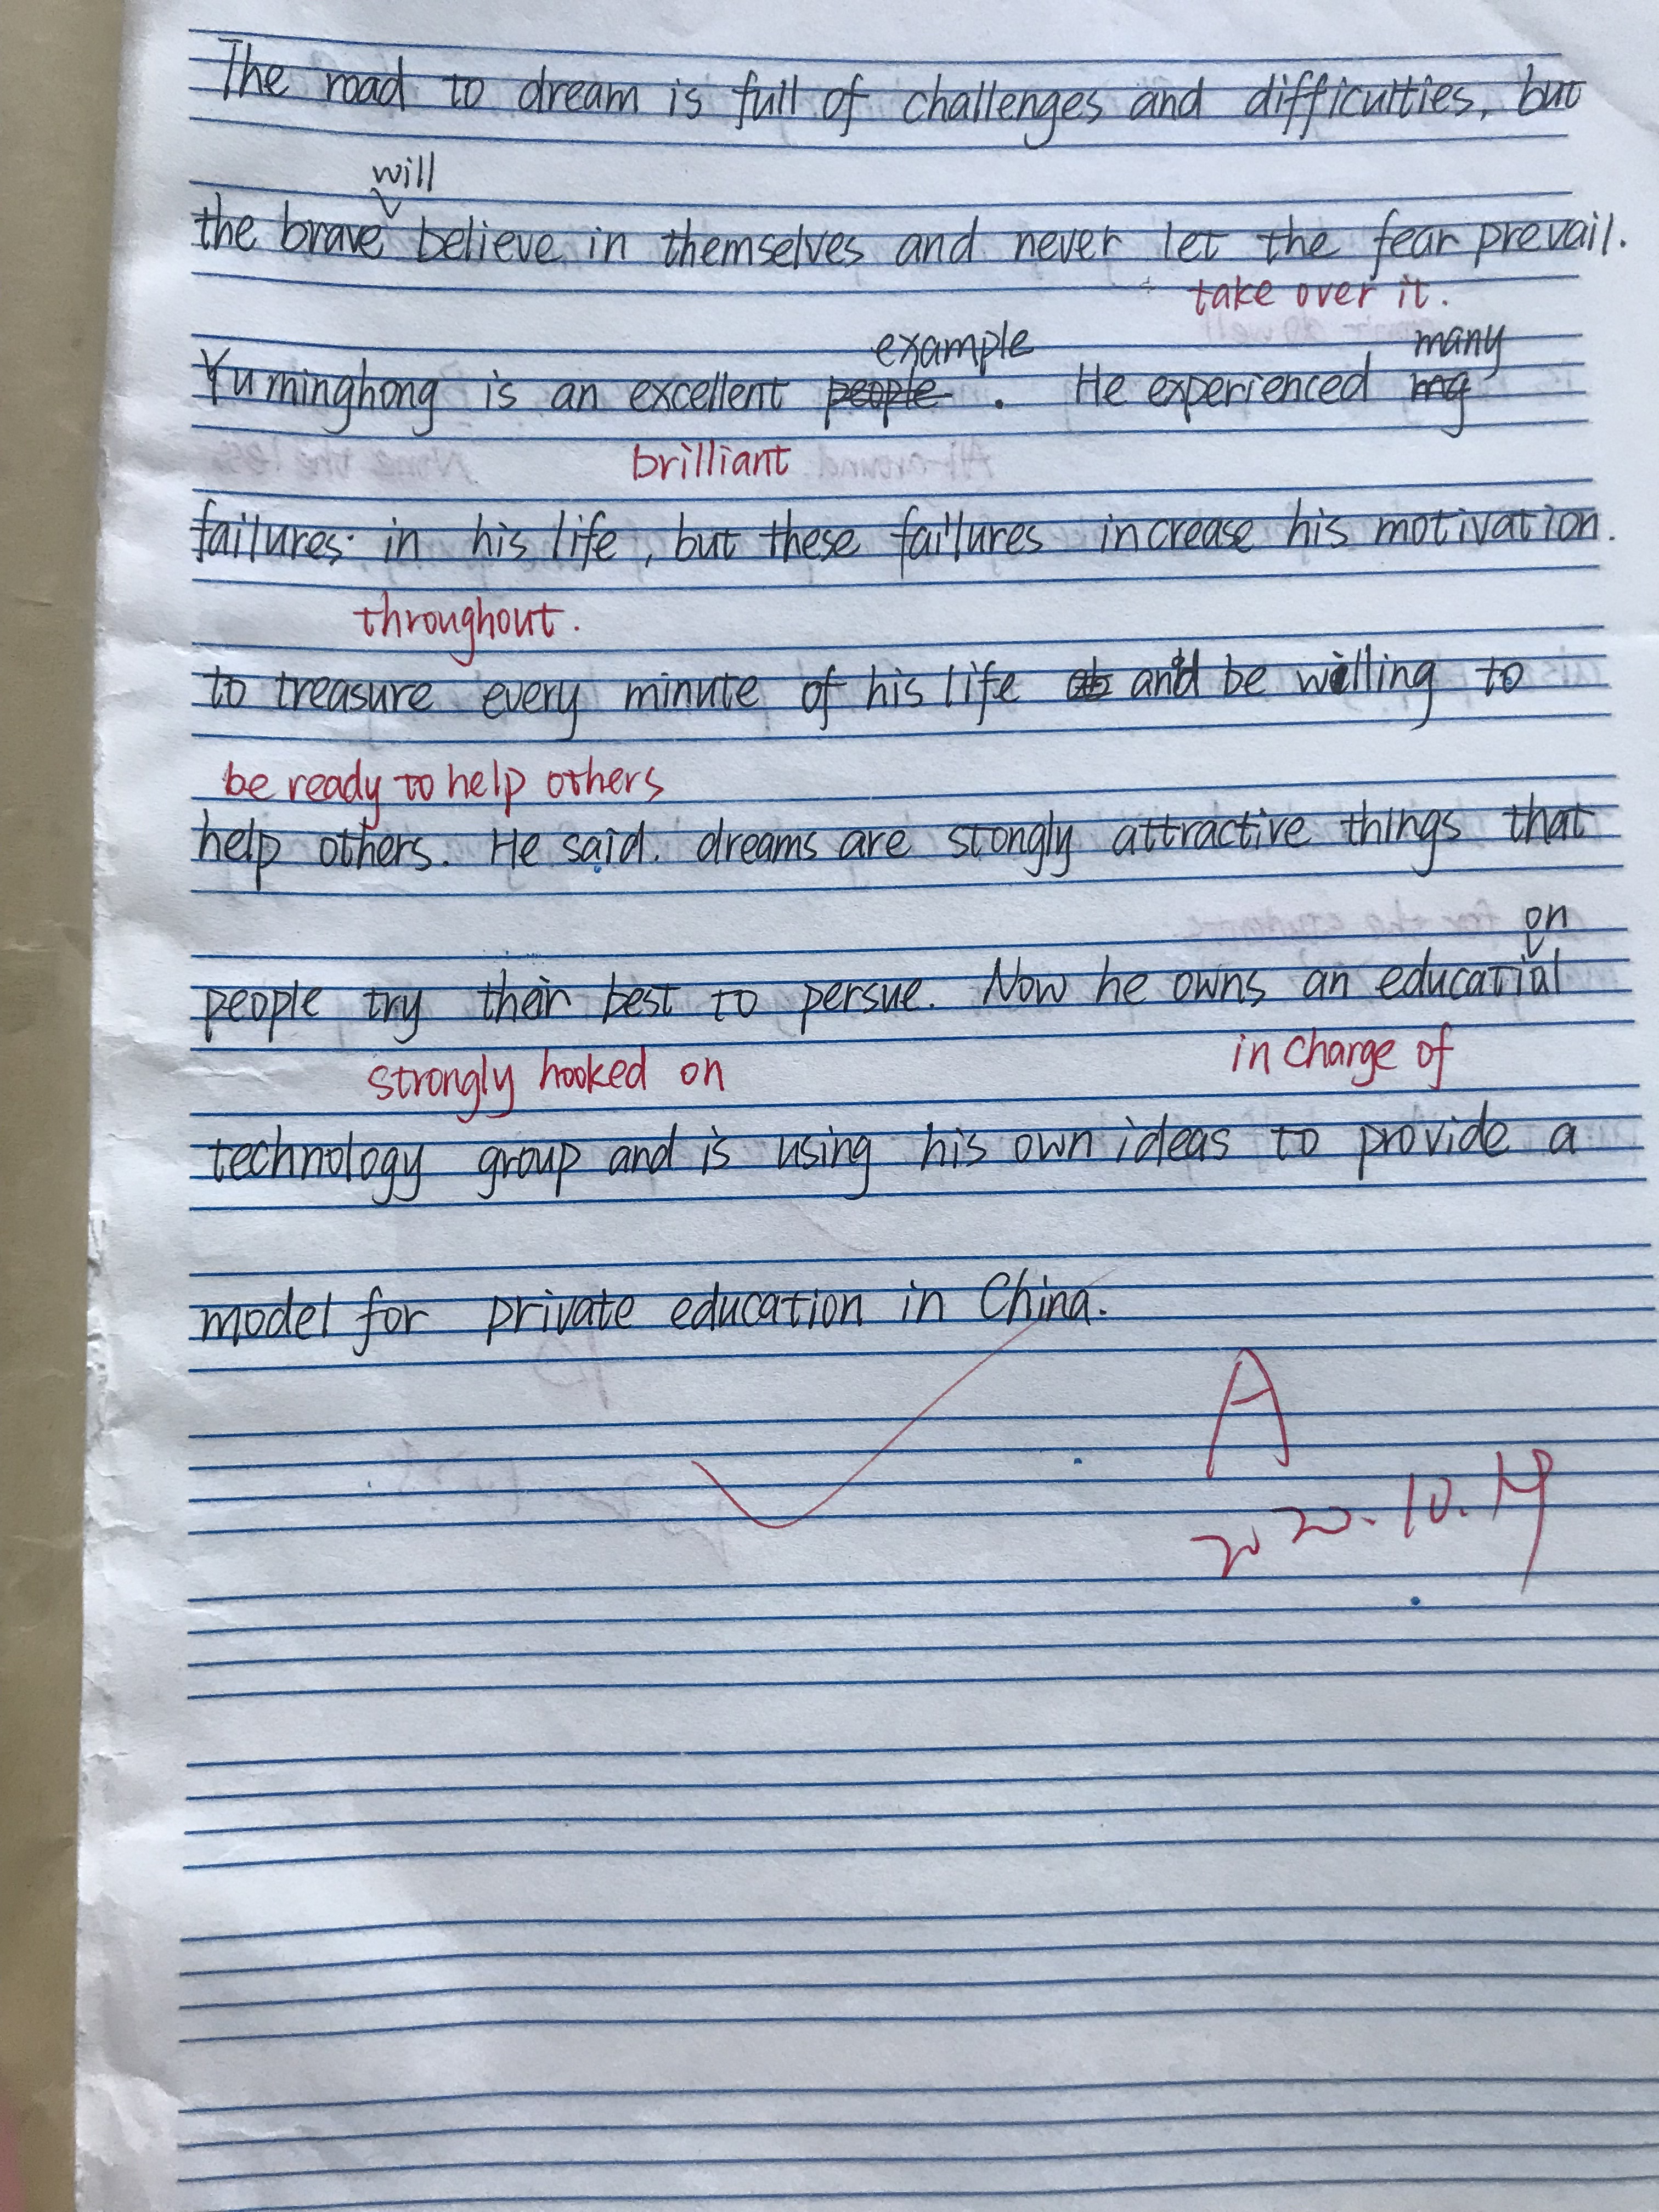 The road to dream is full of challenges and difficulties, but
will
the brave believe in themselves and never let the fear prevail.
take over it.
example many
Yuminghong is an excellent people. He experienced
brilliant
failures in his life, but these failures increase his motivation.
throughout.
to treasure every minute of his life and be willing to
be ready to help others
help others. He said. dreams are stongly attractive things that
on
people try their best to persue. Now he owns an educatial
strongly hooked on in charge of
technology group and is using his own ideas to provide a
model for private education in China.
A